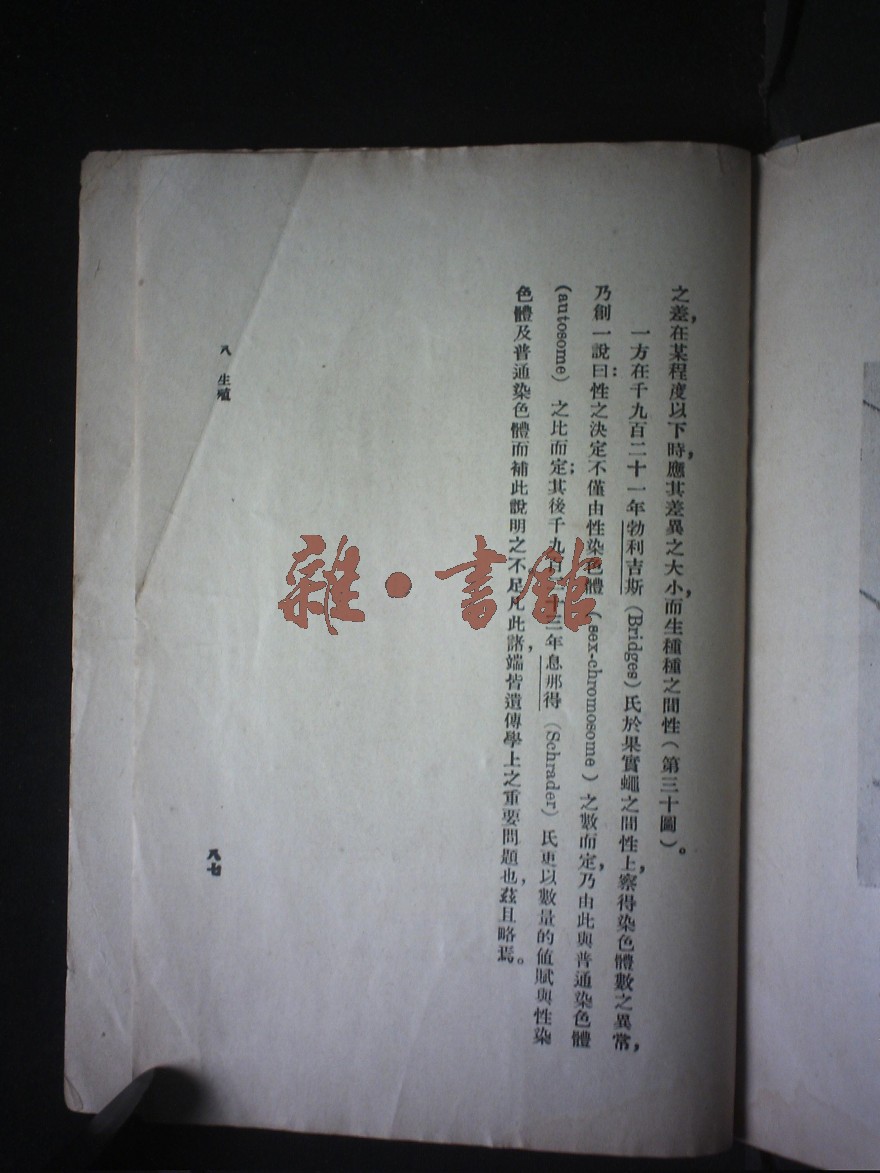 之差，在某程度以下時，應其差異之大小，而生種種之間性（第三十圖）。
一方在千九百二十一年勃利吉斯（Bridges）氏於果實蠅之間性上，察得染色體數之異常，
乃創一說曰：性之決定不僅由性染色體（sex-chromosome）之數而定，乃由此與普通染色體
（autosome）之比而定；其後千九百二十三年息那得（Schrader）氏更以數量的値賦與性染
色體及普通染色體而補此說明之不足，凡此諸端皆遺傳學上之重要問題也，茲且略焉。
八　生殖
八七
雜·書館